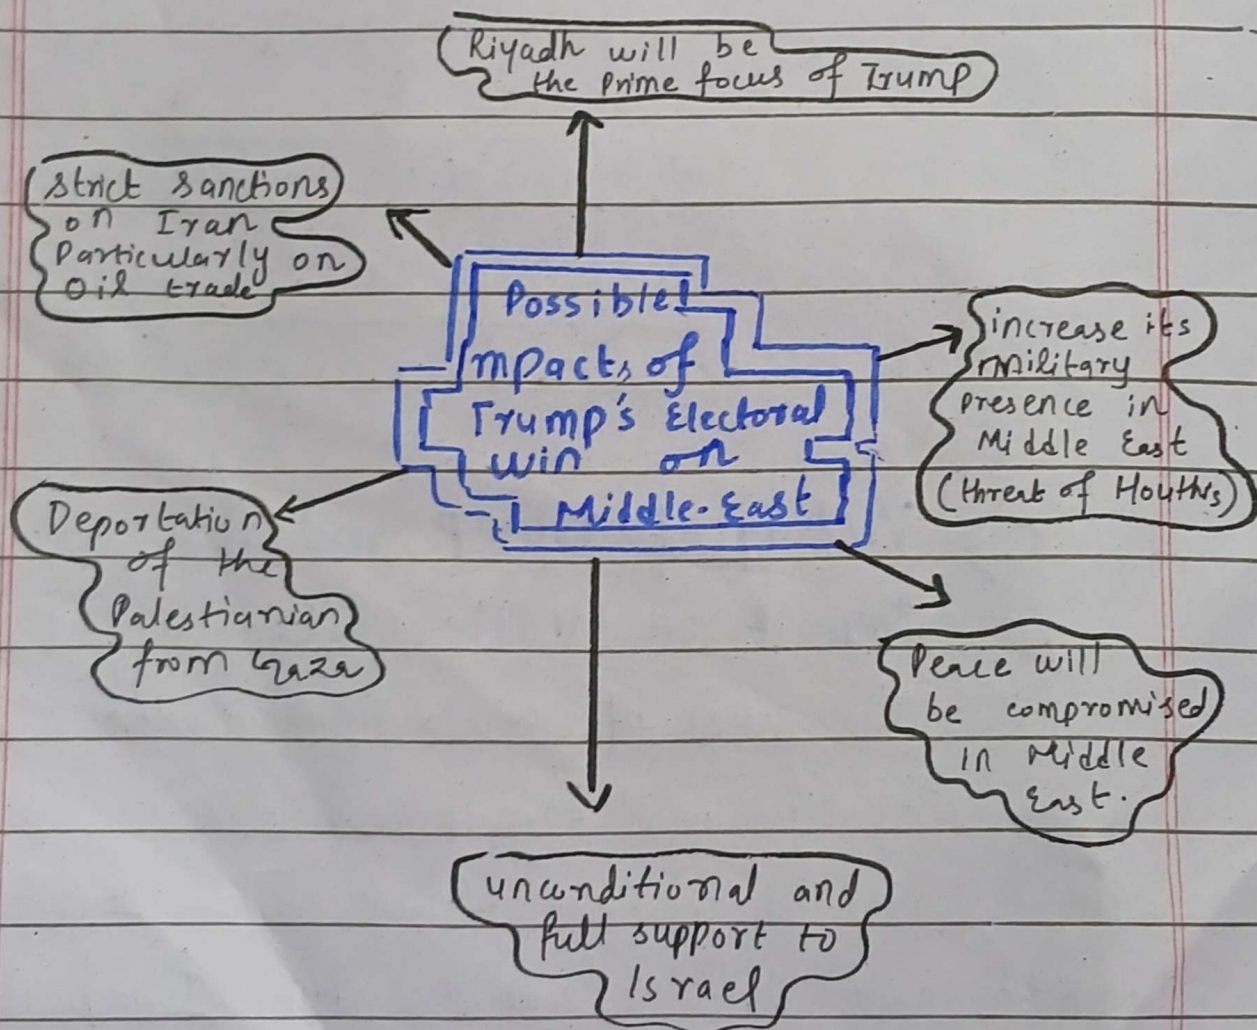 Riyadh will be
the Prime focus of Trump
Strict Sanctions
on Iran
Particularly on
Oil trade
Possible I
mpacts of
Trump's Electoral
win on
Middle-East
increase its
military
presence in
Middle East
(threat of Houthis)
Deportation
of the
Palestianian
from Gaza
Peace will
be compromised
in Middle
East.
unconditional and
full support to
Israel